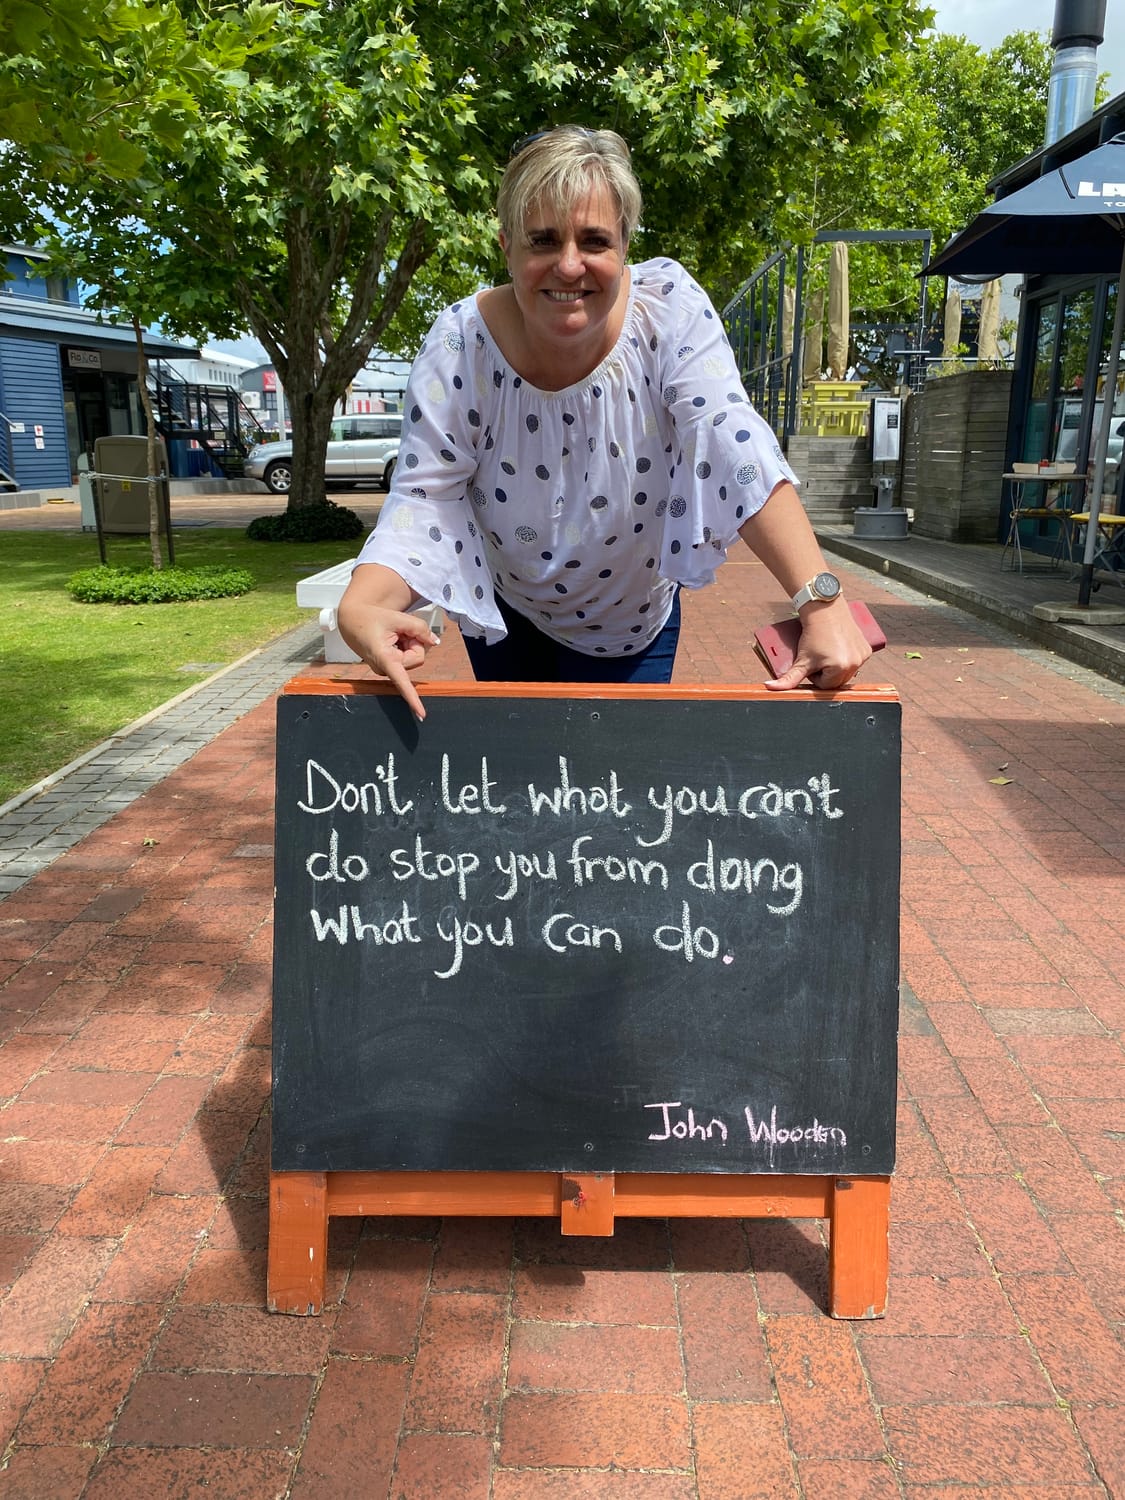 Don't let what you can't
do stop you from doing
What you can do.
John Wooden
Flo & Co.